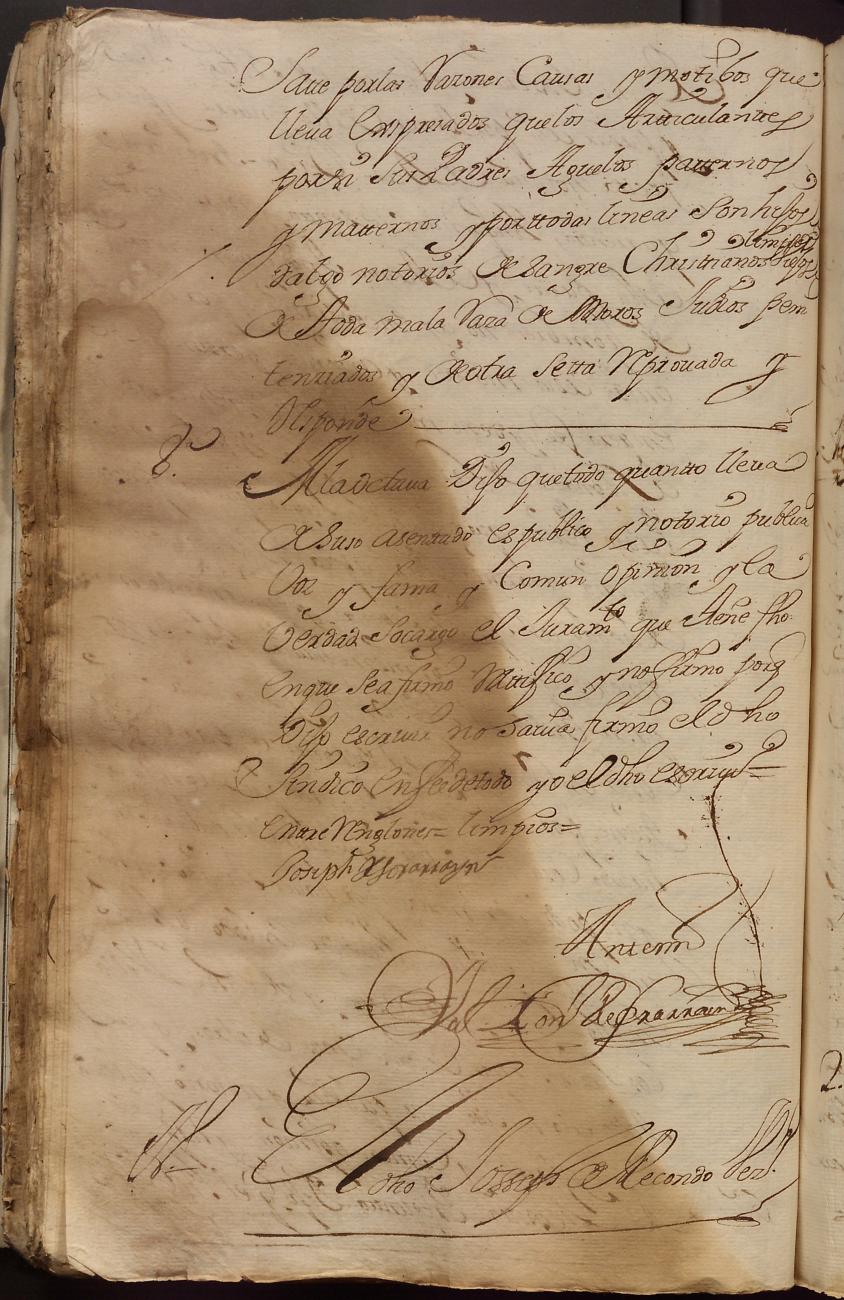 Saue por las Razones Causas y motibos que
lleua Empresados que los Articulantes
por si sus Padres Aguelos paternos
y maternos y por ttodas lineas Son hijos
limpios
dalgo notorios de Sangre Christianos Viejos
de ttoda mala Raza de Moros Judios peni
tenziados y de otra Setta Reprouada y
Responde
8.
A la octaua Dijo que todo quantto lleua
de Suso asentado es publico y notorio publica
Voz y fama y Comun opinion y la
Verdad Socargo el Juram.to que tiene fho
en que se afirmo Rattifico y no firmo porq
Dijo escriuir no Sauia firmo el dho
Sindico en fee de todo y o el dho escriu.no =
entre Renglones = limpios =
Joseph de Yrarrazin
Antemi
dho Joseph de Recondo Vez.
2.